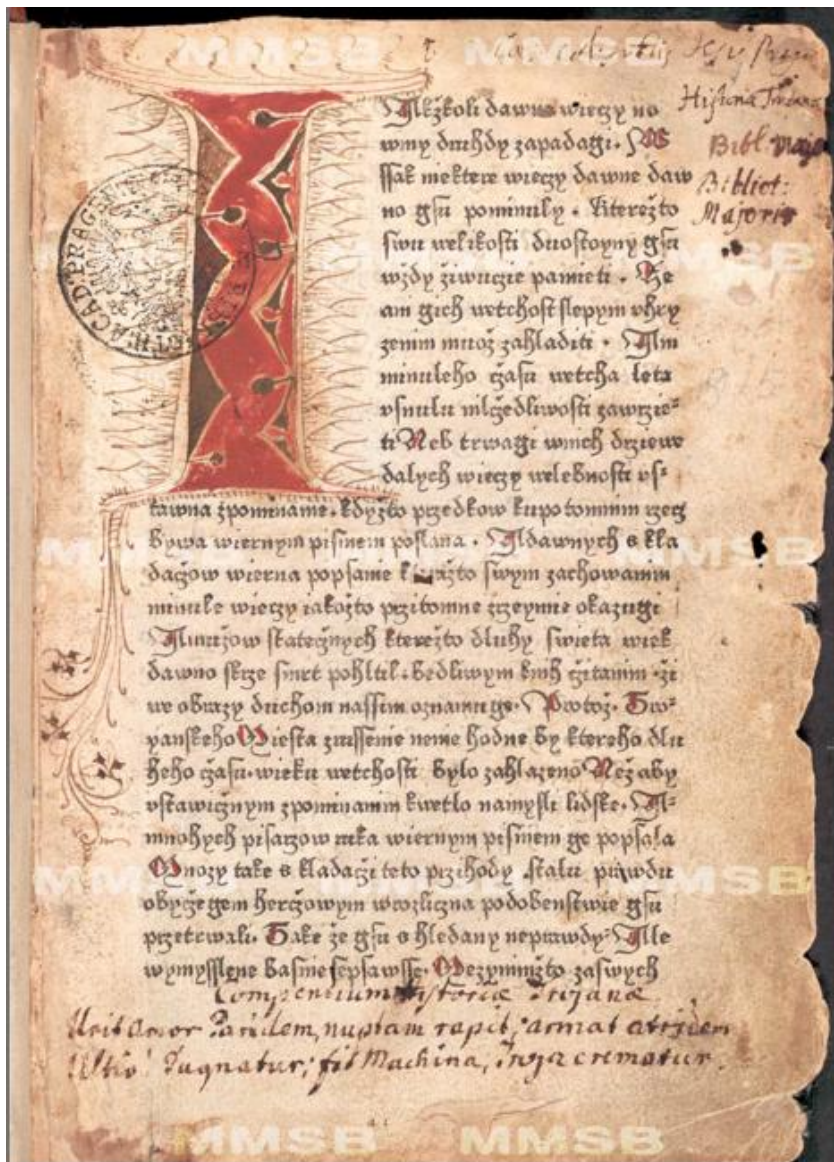 Historia Trojana
Bibl: Maj
Bibliot:
Majoris
Akžkoli dawne wieczy no
wmy druhdy zapadagi. W
ssak niektere wieczy dawne daw
no gsu pominuly. kterežto
swu welikosti duostoyny gsu
wždy žiwucie pamieti. Ze
ani gich wetchost slepym vhry
zenim muož zahladiti. Ani
minuleho czasu wetcha leta
vsnulu mlczedliwosti zawrzie-
ti Neb trwagi wnich drziewe
dalych wieczy welebnosti vs-
tawna zpominanie. kdyžto przedkow kupotomnim rzecz
bywa wiernym pismem poslana. A dawnych skla
daczow wierna popsanie kterážto swym zachowanim
minule wieczy iakožto przitomne zrzeynie okazugi
A mužow statecznych kterežto dluhy swieta wiek
dawno skrze smrt pohltil. bedliwym knih czitanim ži
we obrazy duchom nassim oznamuge. Protož. Tro-
yanskeho Miesta zrussenie nenie hodne by ktereho dlu
heho czasu wieku wetchosti bylo zahlazeno Než aby
vstawicznym zpominanim kwetlo namysli lidske. A-
mnohych pisarzow ruka wiernym pismem ge popsala
Mnozy take skladaczi teto przihody stalu prawdu
obyczegem herczowym wrozliczna podobenstwie gsu
przetrwali. Take že gsu shledany neprawdy. Ale
wymysslene basnie sepsawsse. Mezy nimižto zaswych
Compendium historiæ Trojanæ
Urit amor Paridem, nuptam rapit, armat atriden
Ultio Pugnatur; fit Machina, Troja crematur.
MMSB